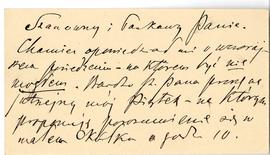 Szanowny i Łaskawy Panie.
Chamiec opowiedział mi o wczoraj
szem posiedzeniu – na którem być nie
mogłem. Bardzo p. Pana
mój Piątek – na którym
proponuję porozumienie się w
małem Kółku o godz 10.